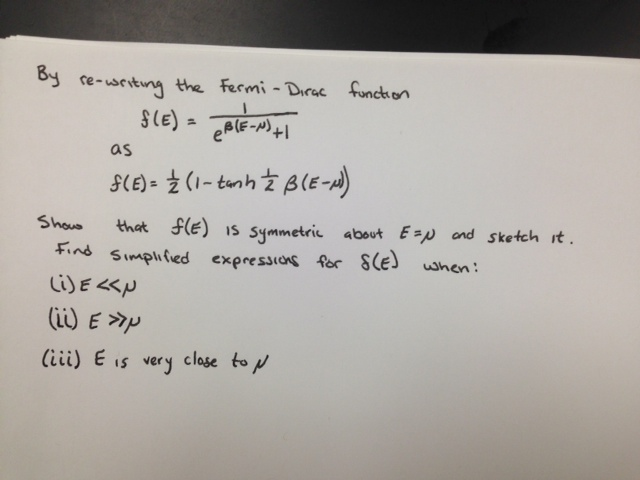 By re-writing the Fermi-Dirac function
f(E) = 1 / (e^{β(E-μ)} + 1)
as
f(E) = 1/2 (1 - tanh 1/2 β(E-μ))
Show that f(E) is symmetric about E=μ and sketch it.
Find simplified expressions for f(E) when:
(i) E << μ
(ii) E >> μ
(iii) E is very close to μ